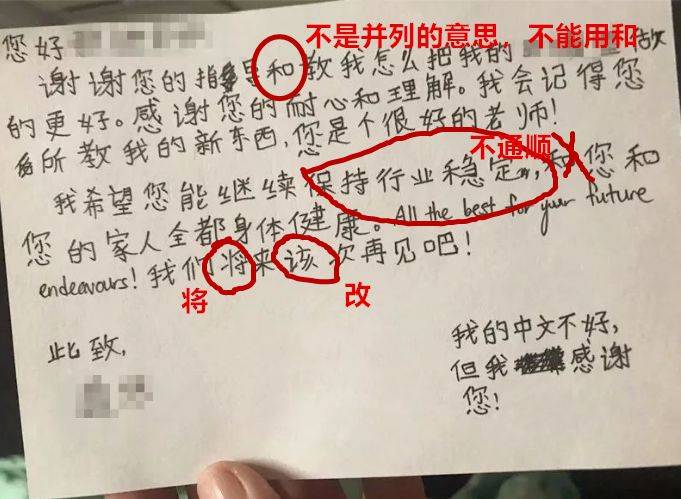 不是并列的意思，不能用和
您好
谢谢您的指导和教我怎么把我的 做
的更好。感谢您的耐心和理解。我会记得您
所教我的新东西,您是个很好的老师!
不通顺
我希望您能继续保持行业稳定,和您和
您的家人全都身体健康。All the best for your future
endeavours! 我们将来该次再见吧!
将 改
此致,
我的中文不好,
但我 感谢
您!